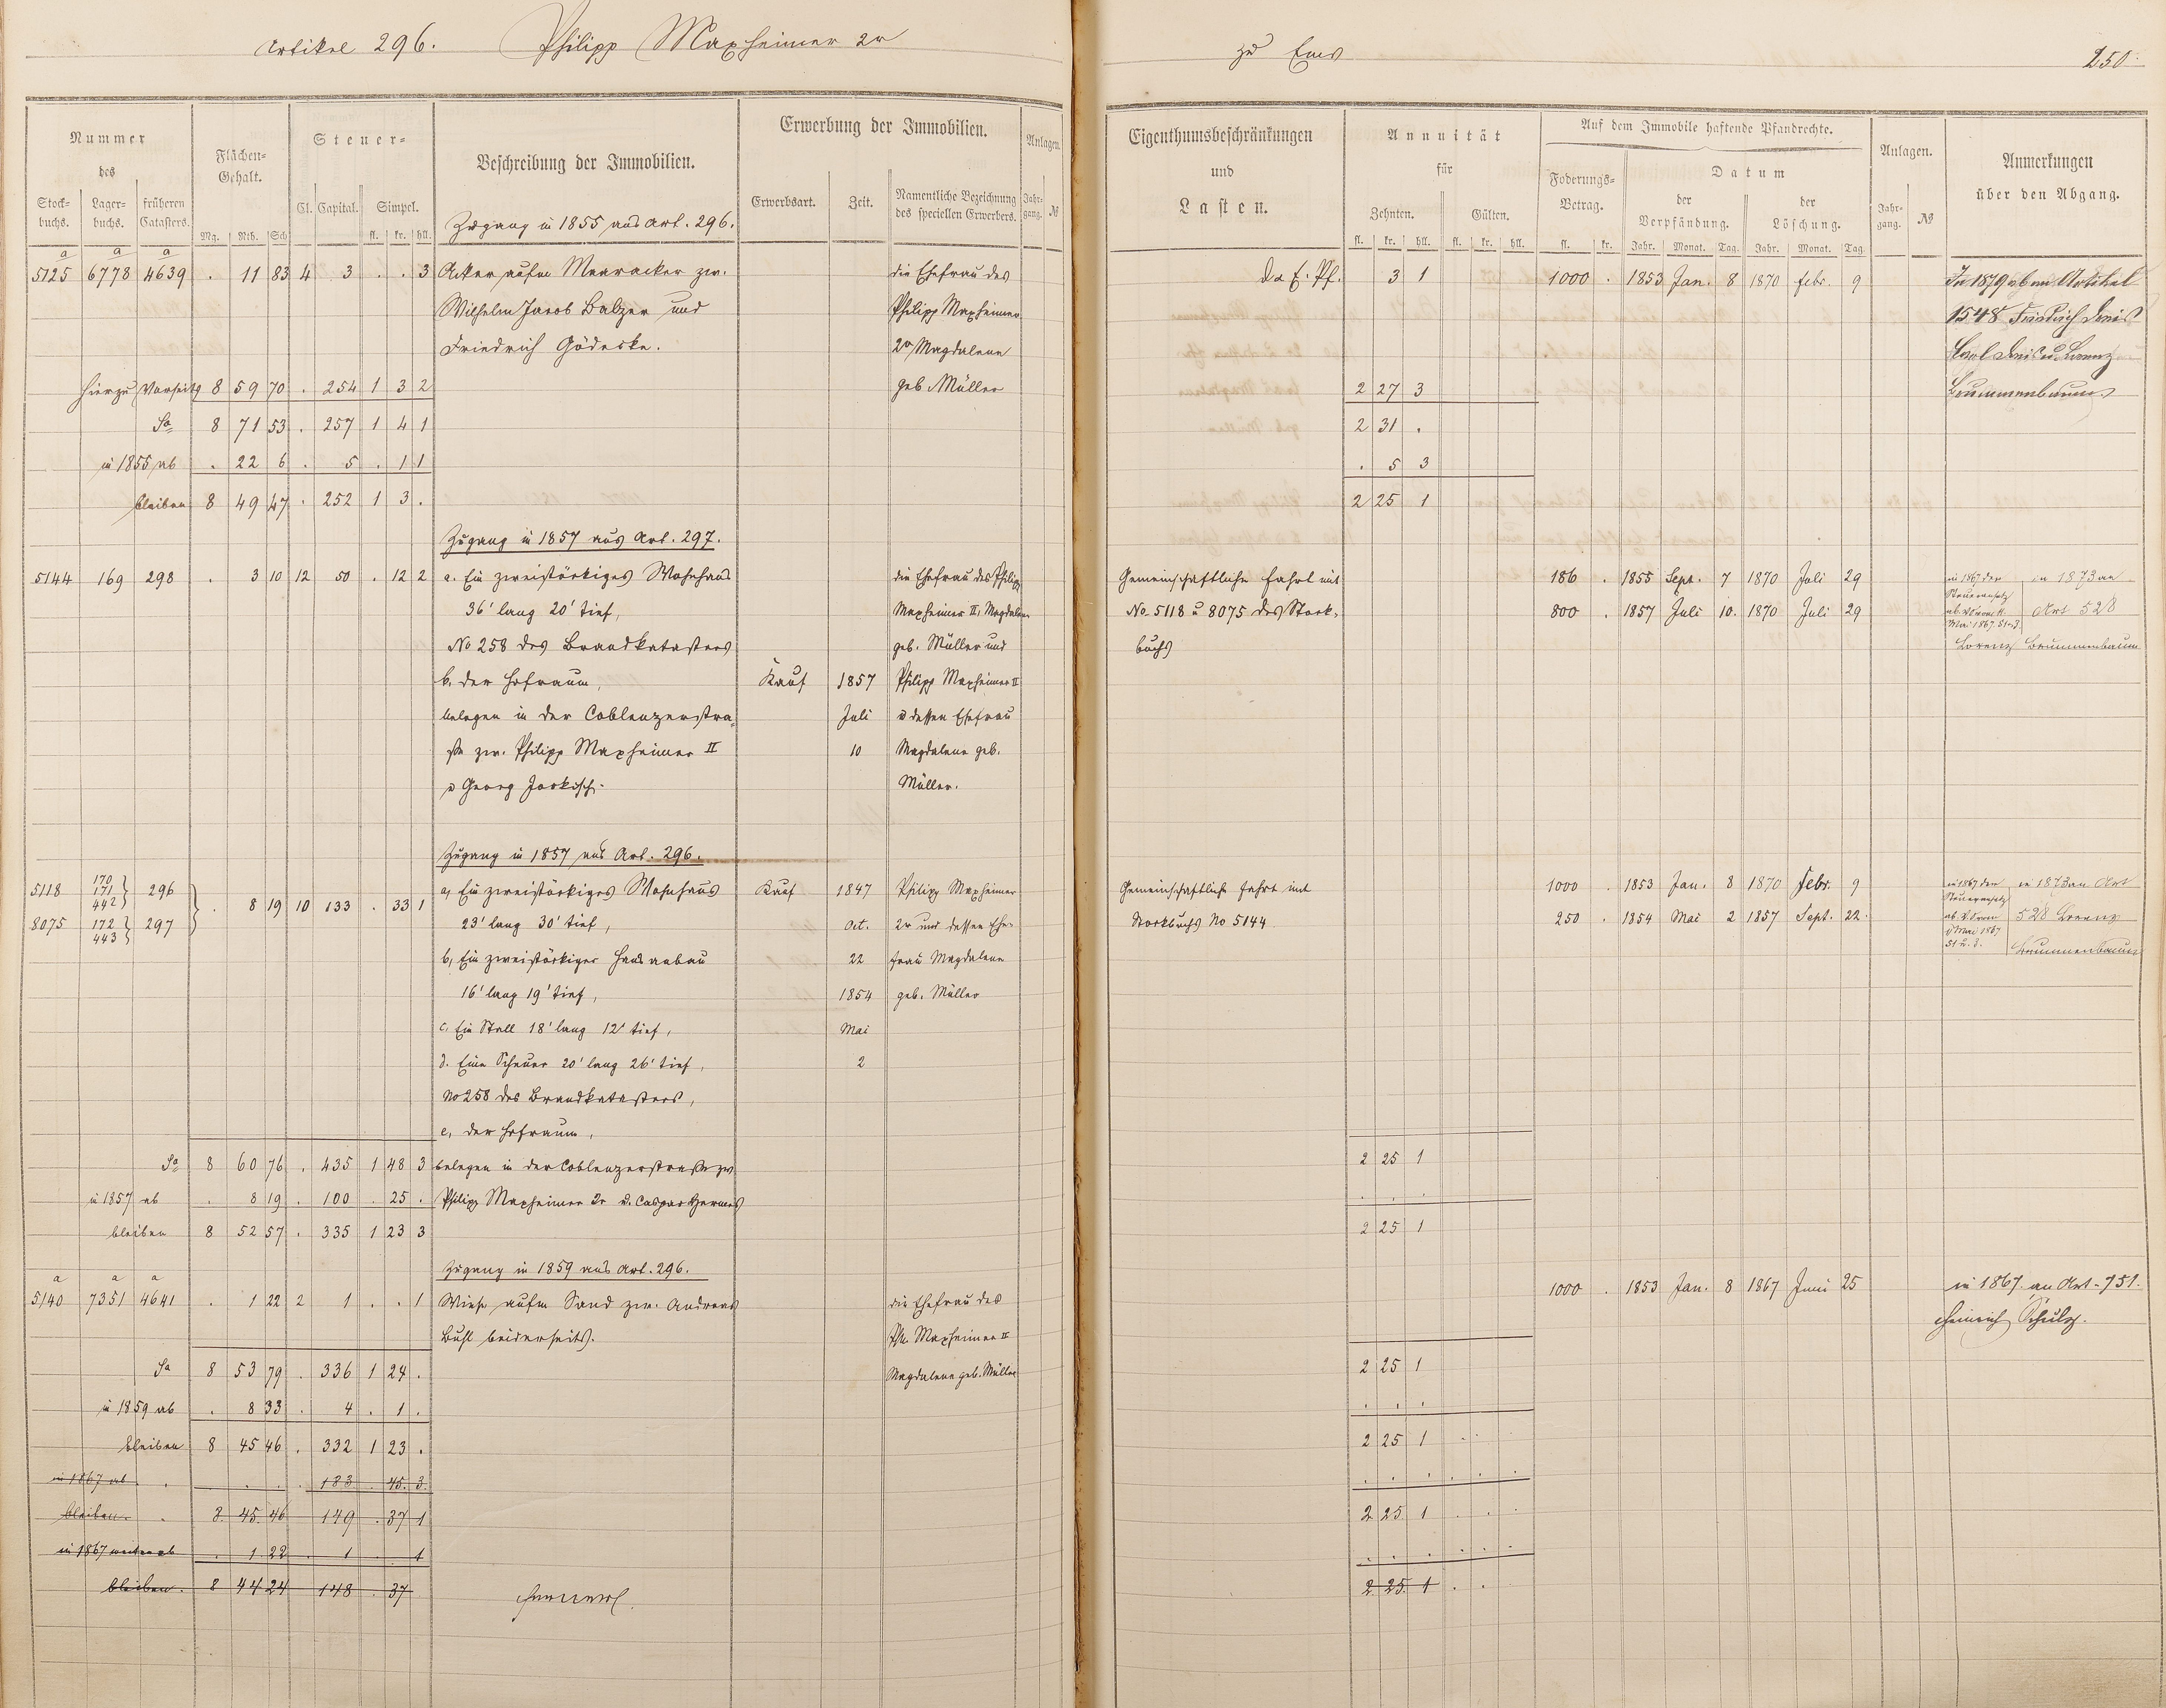 Artikel 296. Philipp Maxheimer 2r
zu Ems
250.
Nummer des
Stock-buchs. Lager-buchs. früheren Catasters.
Flächen-Gehalt.
Mg. Rth. Sch
Steuer-
Cl. Capital. Simpel.
fl. kr. hll.
Beschreibung der Immobilien.
Erwerbung der Immobilien.
Erwerbsart. Zeit. Namentliche Bezeichnung des speciellen Erwerbers.
Anlagen.
Jahr-gang. №
Eigenthumsbeschränkungen
und
Lasten.
Annuität
für
Zehnten. Gülten.
fl. kr. hll. fl. kr. hll.
Auf dem Immobile haftende Pfandrechte.
Foderungs-Betrag.
fl. kr.
Datum
der Verpfändung. der Löschung.
Jahr. Monat. Tag. Jahr. Monat. Tag.
Anlagen.
Jahr-gang. №
Anmerkungen
über den Abgang.
Zugang in 1855 aus Art. 296.
a a a
5125 6778 4639 . 11 83 4 3 . . 3 Acker aufm Marracker zw. die Ehefrau des
Wilhelm Jacob Balzer und Philipp Maxheimer
Friedrich Gödecke. 2r Magdalene
hierzu Vorseite 8 59 70 . 254 1 3 2 geb. Müller
Sa 8 71 53 . 257 1 4 1
in 1855 ab . 22 6 . 5 . 1 1
bleiben 8 49 47 . 252 1 3 .
Zugang in 1857 aus Art. 297.
5144 169 298 . 3 10 12 50 . 12 2 a. Ein zweistöckiges Wohnhaus die Ehefrau des Philipp
36' lang 20' tief, Maxheimer II, Magdalene
No 258 des Brandkatasters geb. Müller und
b. der Hofraum, Kauf 1857 Philipp Maxheimer II
belegen in der Coblenzerstra- Juli u dessen Ehefrau
ße zw. Philipp Maxheimer II 10 Magdalene geb.
u Georg Jorkisch. Müller.
Zugang in 1857 aus Art. 296.
5118 170 171 442 296
8075 172 443 297
. 8 19 10 133 . 33 1
a, Ein zweistöckiges Wohnhaus Kauf 1847 Philipp Maxheimer
23' lang 30' tief, Oct. 2r und dessen Ehe-
b, Ein zweistöckiger Hausanbau 22 frau Magdalene
16' lang 19' tief, 1854 geb. Müller
c. Ein Stall 18' lang 12' tief, Mai
d. Eine Scheuer 20' lang 26' tief, 2
No 258 des Brandkatasters,
e, der Hofraum,
Sa 8 60 76 . 435 1 48 3 belegen in der Coblenzerstraße zw.
in 1857 ab . 8 19 . 100 . 25 . Philipp Maxheimer 2r u. Caspar Hermes
bleiben 8 52 57 . 335 1 23 3
Zugang in 1859 aus Art. 296.
a a a
5140 7351 4641 . 1 22 2 1 . . 1 Wiese aufm Sand zw. Andreas die Ehefrau des
Buhl beiderseits. Ph. Maxheimer II
Sa 8 53 79 . 336 1 24 . Magdalene geb. Müller
in 1859 ab . 8 33 . 4 . 1 .
bleiben 8 45 46 . 332 1 23 .
in 1867 ab . . . . 183 . 45 3
bleiben . 8 45 46 149 . 37 1
in 1867 weiter ab . 1 22 . 1 . 1
bleiben . 8 44 24 148 . 37
Da E. Pf. 3 1 1000 . 1853 Jan. 8 1870 Febr. 9 In 1879 ab an Artikel
1548 Friedrich Denis
Carl Denis u. Lorenz
2 27 3 Brummenbaum
2 31 .
. 5 3
2 25 1
Gemeinschaftliche Fahrt mit 186 . 1855 Sept. 7 1870 Juli 29 in 1867 der in 1873 an
No. 5118 u 8075 des Stock- 800 . 1857 Juli 10. 1870 Juli 29 Art 528
buchs Lorenz Brummenbaum
Gemeinschaftliche Fahrt mit 1000 . 1853 Jan. 8 1870 Febr. 9 in 1867 der in 1873 an Art
Stockbuchs No 5144 250 . 1854 Mai 2 1857 Sept. 22. 528 Lorenz
Brummenbaum
2 25 1
. . .
2 25 1
1000 . 1853 Jan. 8 1867 Juni 25 in 1867 an Art. 751.
Heinrich Schulz.
2 25 1
. . .
2 25 1
. . . . . .
2 25 1 . . .
. . . . . .
2 25 1 . .